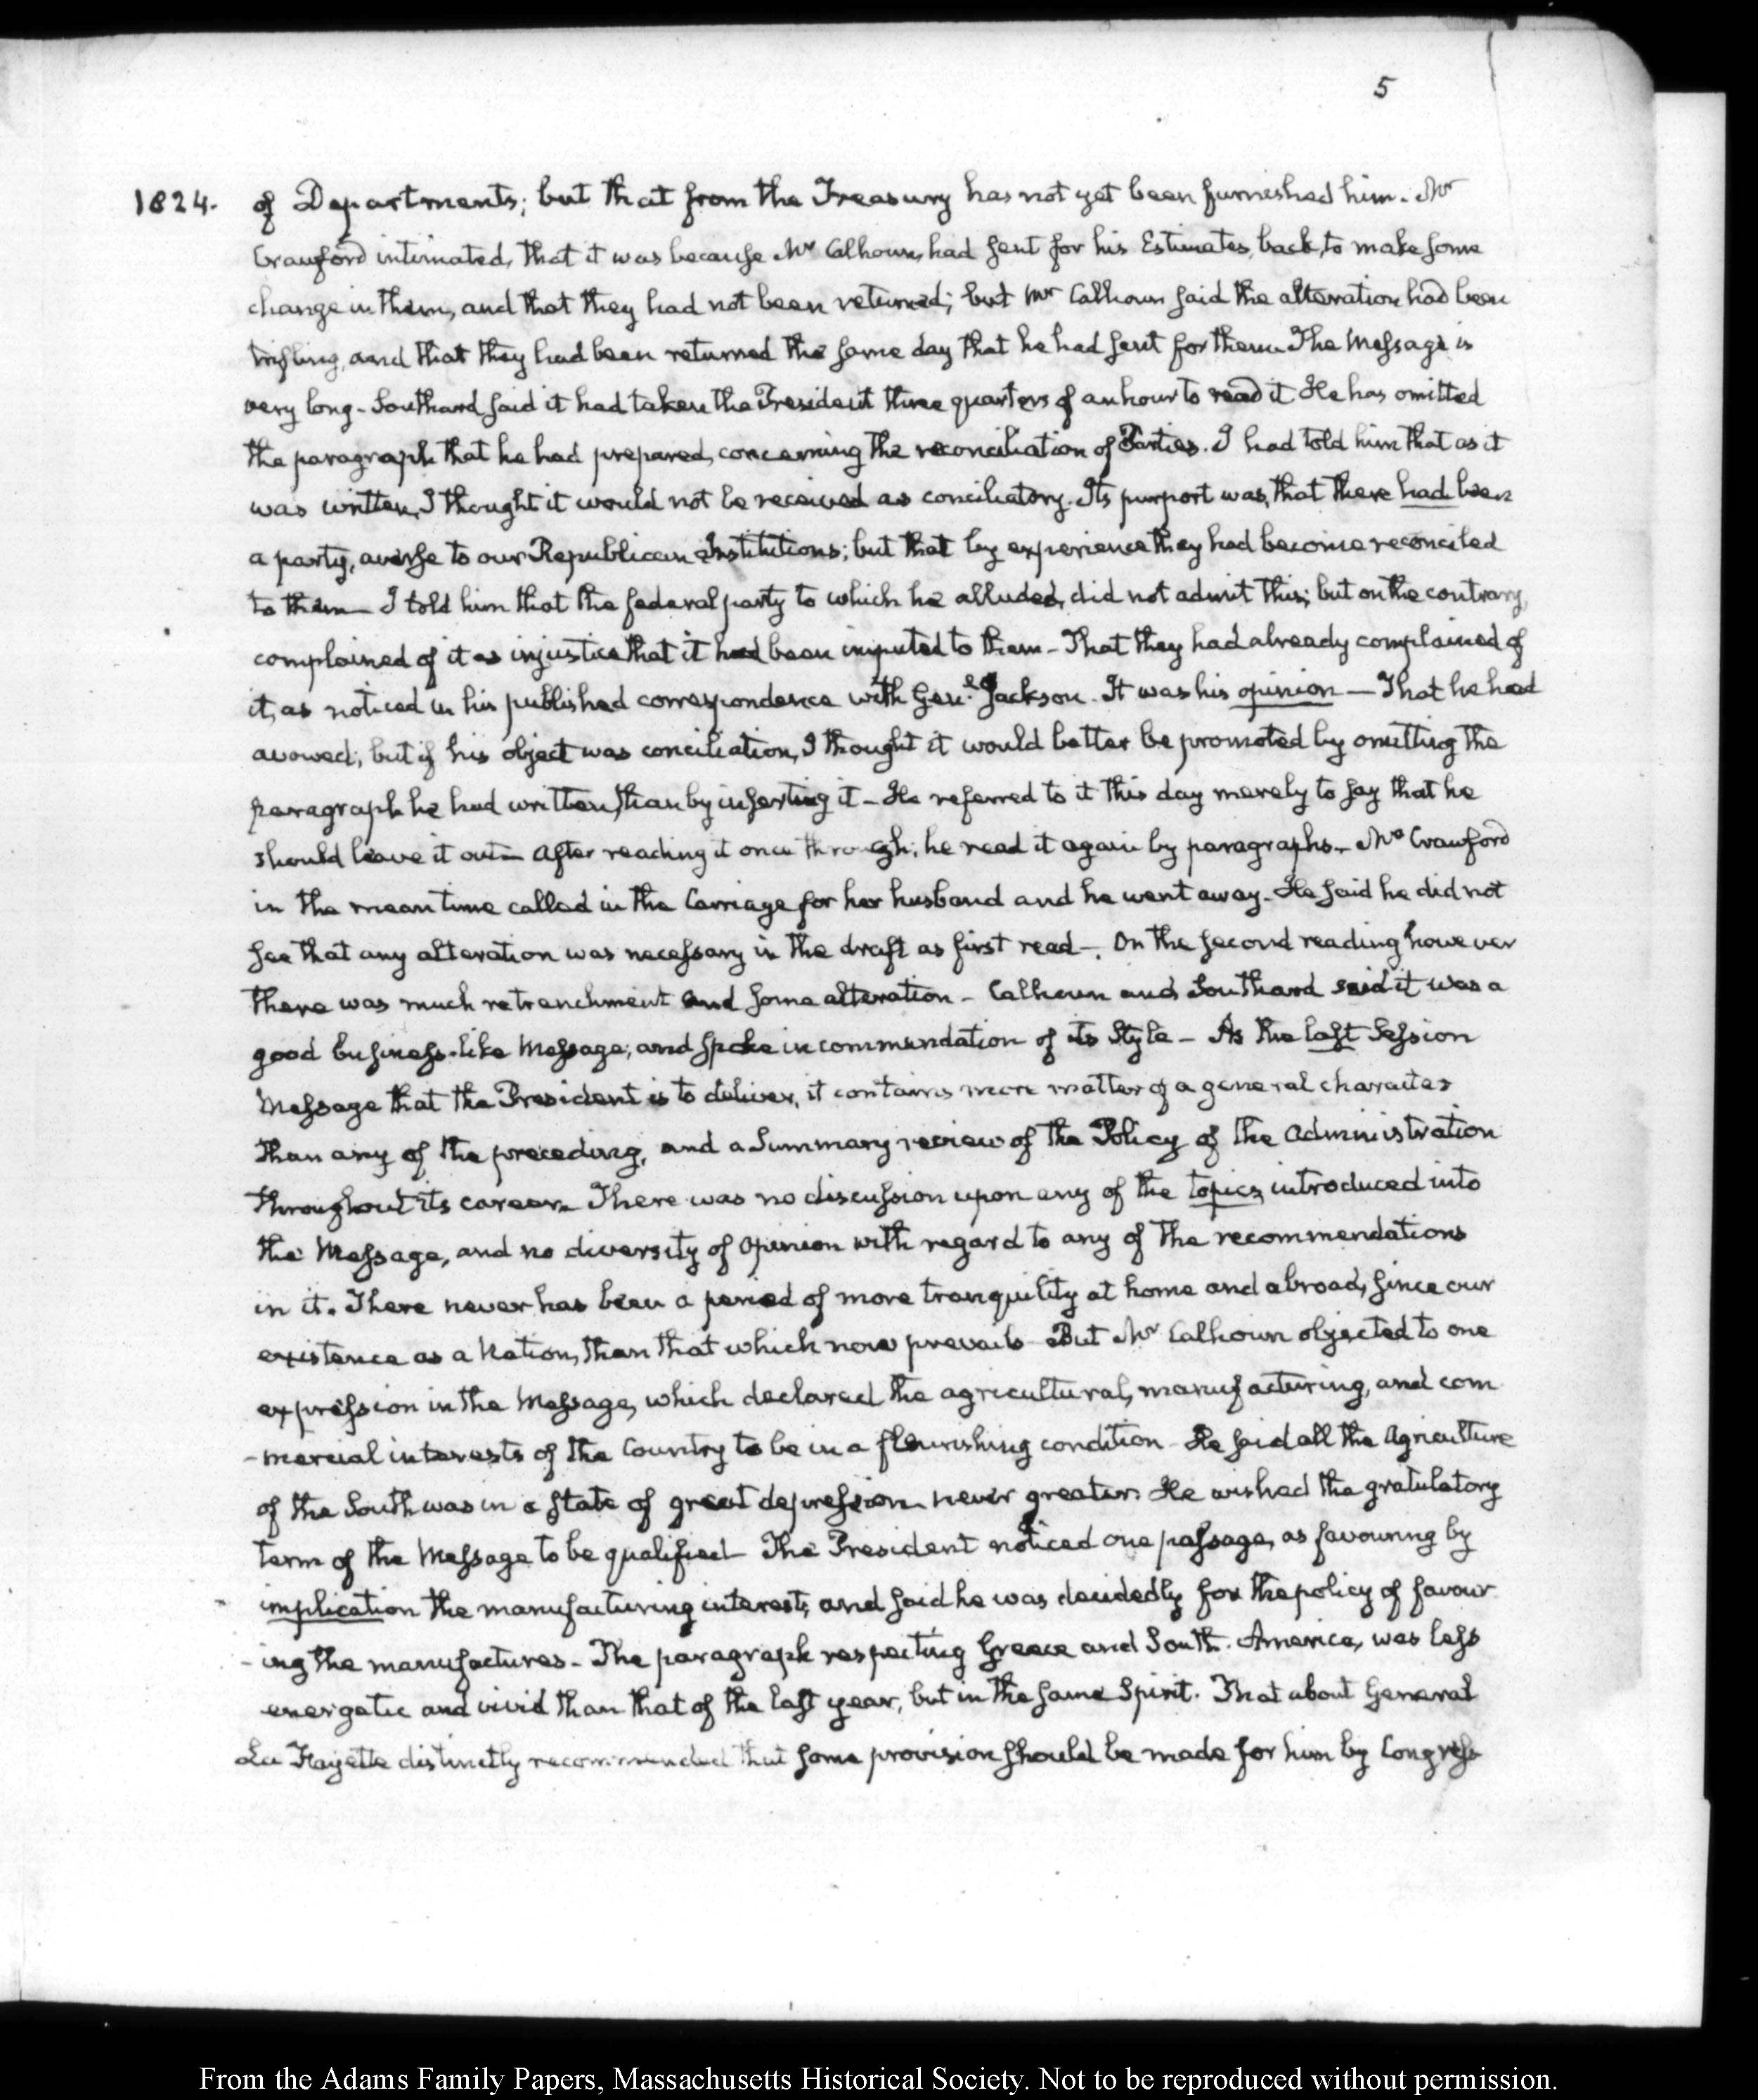 5
1824. of Departments; but that from the Treasury has not yet been furnished him. Mr
Crawford intimated, that it was because Mr Calhoun, had sent for his Estimates, back, to make some
change in them, and that they had not been returned; but Mr Calhoun said the alteration had been
trifling, and that they had been returned the same day that he had sent for them. The Message is
very long - Southard said it had taken the President three quarters of an hour to read it He has omitted
the paragraph that he had prepared, concerning the reconciliation of Parties. I had told him that as it
was written, I thought it would not be received as conciliatory. Its purport was, that there had been
a party, averse to our Republican Institutions; but that by experience they had become reconciled
to them — I told him that the federal party to which he alluded, did not admit this; but on the contrary,
complained of it as injustice that it had been imputed to them - That they had already complained of
it, as noticed in his published correspondence with Genl. Jackson. It was his opinion — That he had
avowed; but if his object was conciliation, I thought it would better be promoted by omitting the
paragraph he had written, than by inserting it - He referred to it this day merely to say that he
should leave it out — After reading it once through; he read it again by paragraphs - Mrs Crawford
in the mean time called in the Carriage for her husband and he went away - He said he did not
see that any alteration was necessary in the draft as first read -. On the second reading however
there was much retrenchment and some alteration - Calhoun and Southard said it was a
good business-like Message; and spoke in commendation of its Style - As the last Session
Message that the President is to deliver, it contains more matter of a general character
than any of the preceding, and a Summary review of the Policy of the Administration
throughout its career. There was no discussion upon any of the topics introduced into
the Message, and no diversity of Opinion with regard to any of the recommendations
in it. There never has been a period of more tranquility at home and abroad, since our
existence as a Nation, than that which now prevails - But Mr Calhoun objected to one
expression in the Message, which declared the agricultural, manufacturing, and com
-mercial interests of the Country to be in a flourishing condition - He said all the Agriculture
of the South was in a state of great depression never greater. He wished the gratulatory
term of the Message to be qualified - The President noticed one passage, as favouring by
implication the manufacturing interests, and said he was decidedly for the policy of favour
-ing the manufactures - The paragraph respecting Greece and South America, was less
energetic and vivid than that of the last year, but in the same Spirit. That about General
La Fayette distinctly recommended that some provision should be made for him by Congress
From the Adams Family Papers, Massachusetts Historical Society. Not to be reproduced without permission.